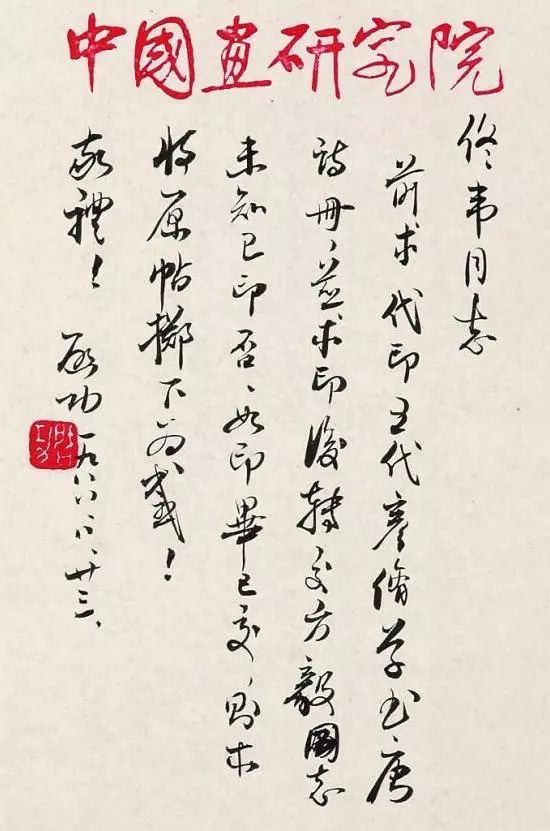 中國畫研究院
佟韦同志
前求代印五代彦脩草书唐
詩册、並求印後转交方毅同志
未知已印否、如印畢已交、则求
将原帖擲下为感！
敬禮！
启功 一九八 廿三、